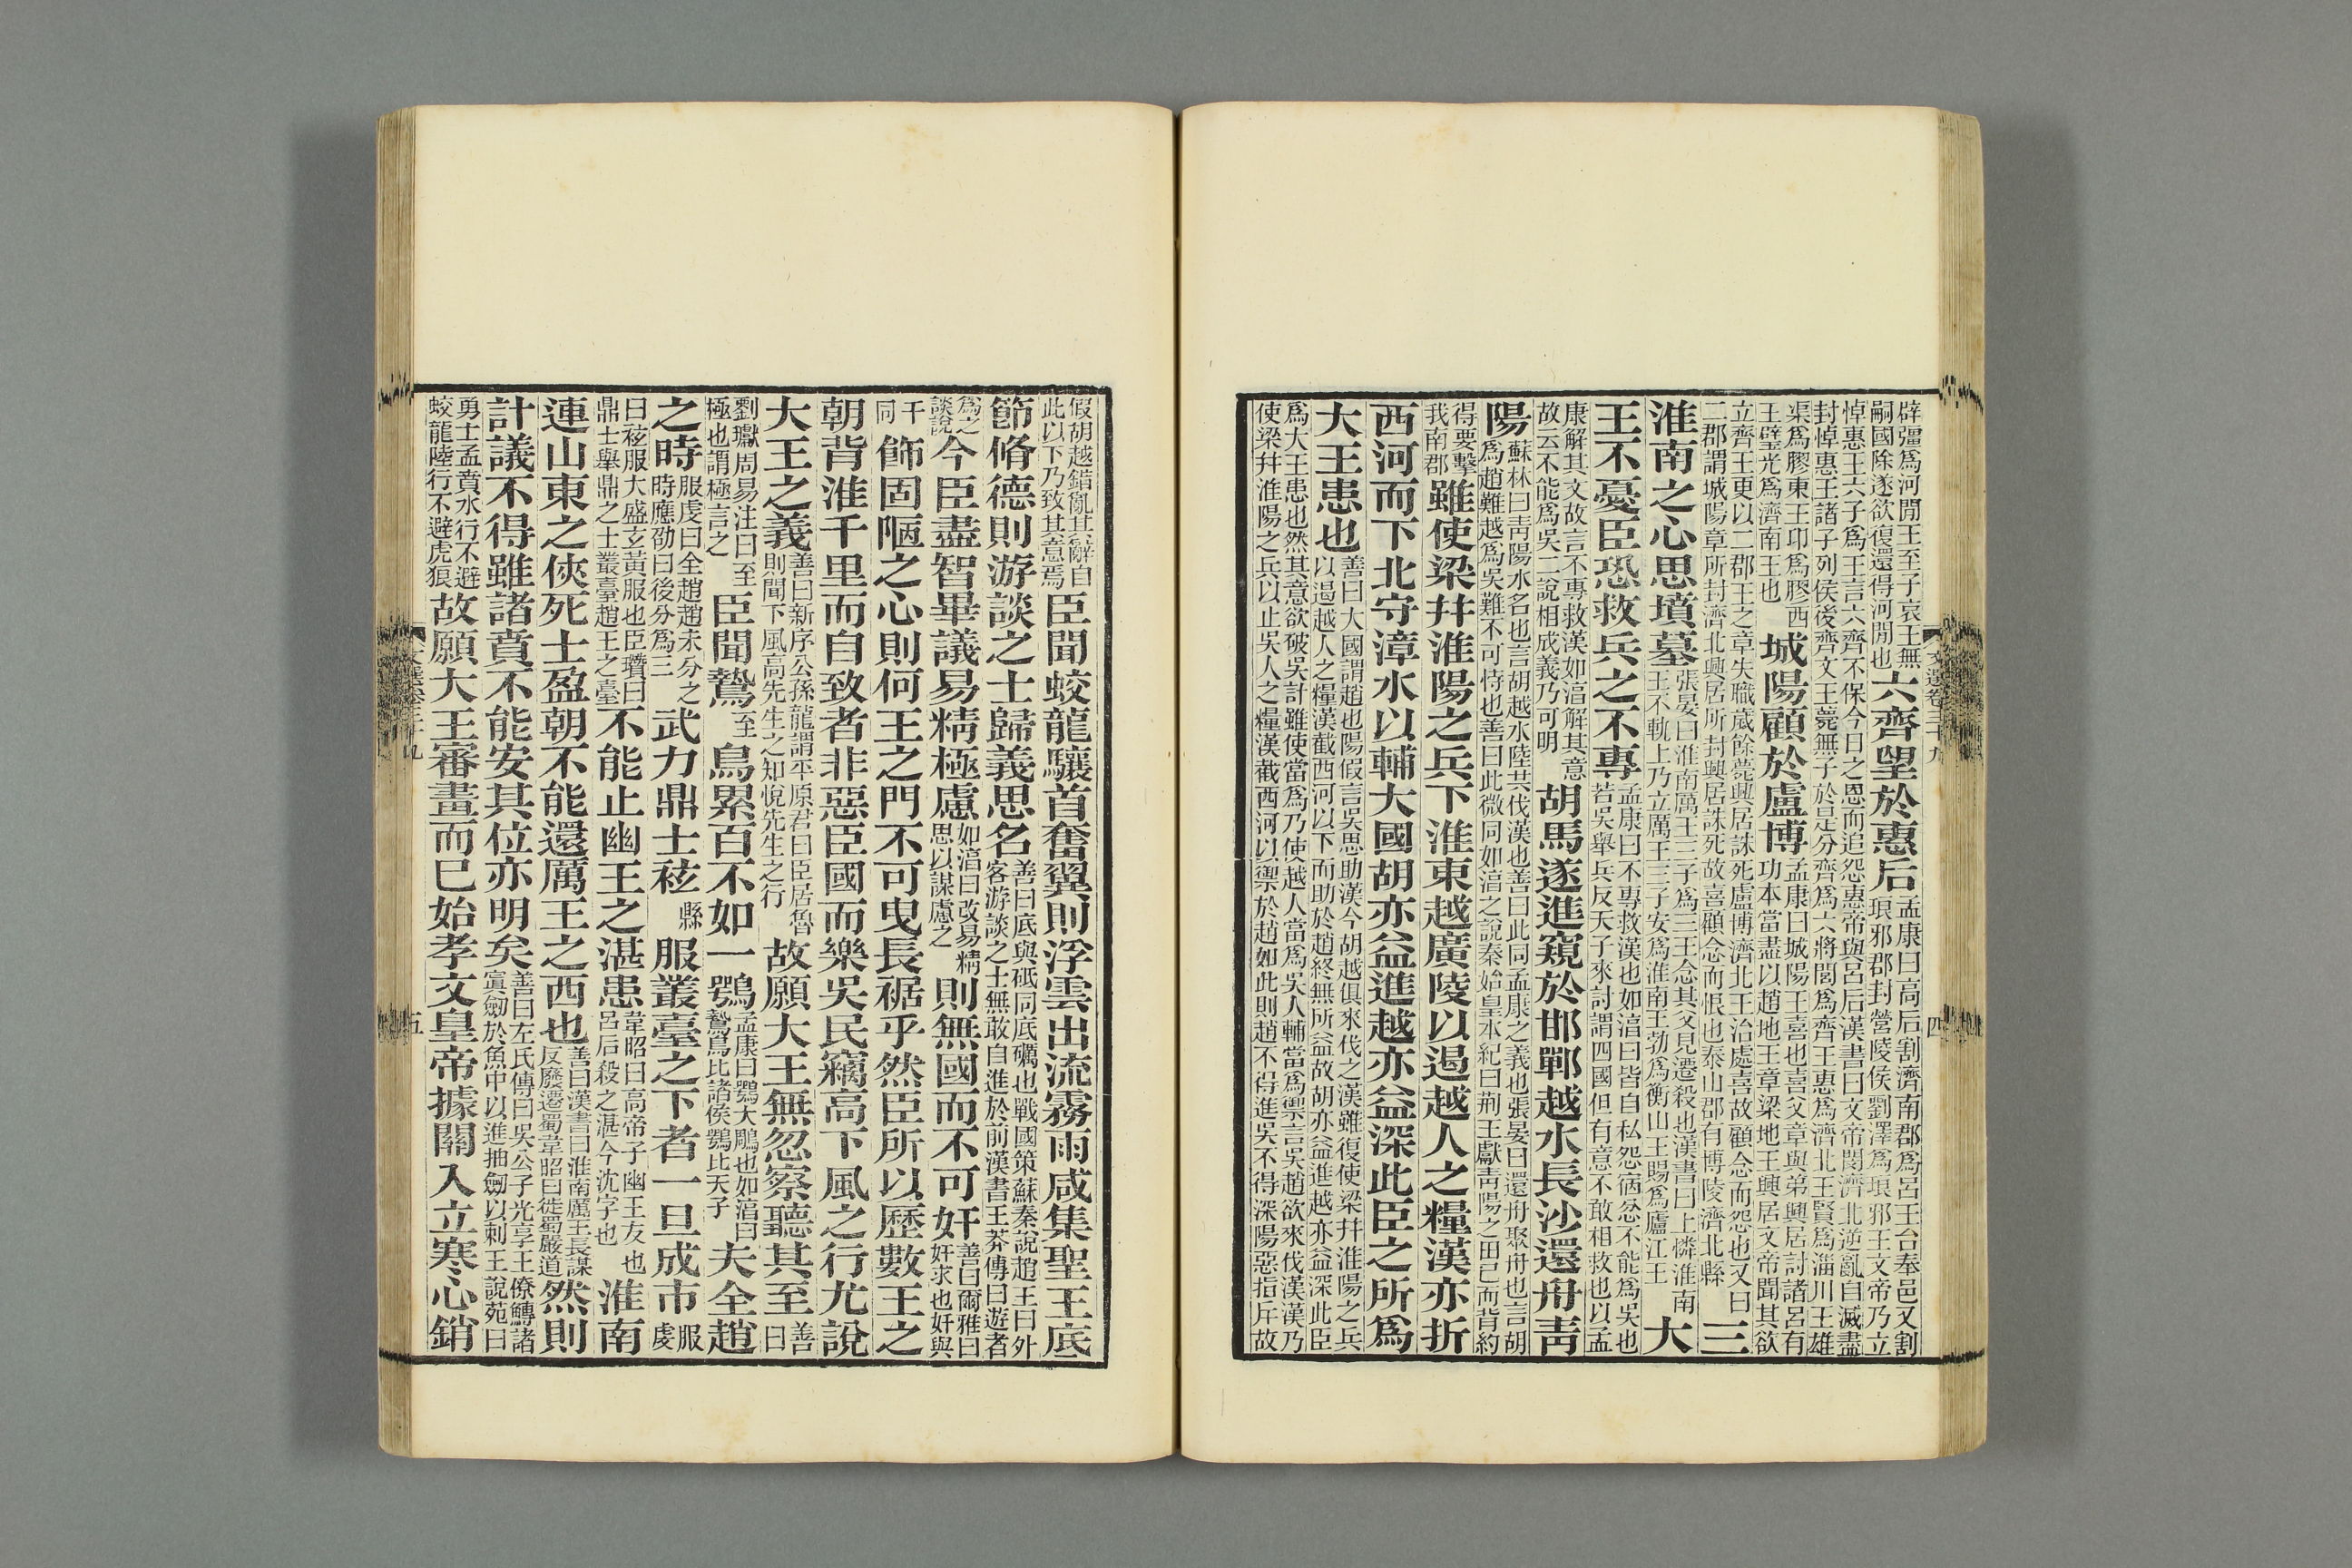 辟彊爲河閒王至子哀王無
嗣國除遂欲復還得河閒也
六齊望於惠后
孟康曰高后割濟南郡爲呂王台奉邑又割
琅邪郡封營陵侯劉澤爲琅邪王文帝乃立
悼惠王六子爲王言六齊不保今日之恩而追怨惠帝與呂后漢書曰文帝閔濟北逆亂自滅盡
封悼惠王諸子列侯後齊文王薨無子於是分齊爲六將閭爲齊王惠爲濟北王賢爲淄川王雄
渠爲膠東王卬爲膠西
王辟光爲濟南王也
城陽顧於盧博
孟康曰城陽王喜也喜父章與弟興居討諸呂有
功本當盡以趙地王章梁地王興居文帝聞其欲
立齊王更以二郡王之章失職歲餘薨興居誅死盧博濟北王治處喜故顧念而怨也又曰
二郡謂城陽章所封濟北興居所封興居誅死故喜顧念而恨也泰山郡有博陵濟北縣
三
淮南之心思墳墓
張晏曰淮南厲王三子爲三王念其父見遷殺也漢書曰上憐淮南
王不軌上乃立厲王三子安爲淮南王勃爲衡山王賜爲廬江王
大
王不憂臣恐救兵之不專
孟康曰不專救漢也如淳曰皆自私怨宿忿不能爲吳也
若吳舉兵反天子來討謂四國但有意不敢相救也以孟
康解其文故言不專救漢如淳解其意
故云不能爲吳二說相成義乃可明
胡馬遂進窺於邯鄲越水長沙還舟靑
陽
蘇林曰靑陽水名也言胡越水陸共伐漢也善曰此同孟康之義也張晏曰還舟聚舟也言胡
爲趙難越爲吳難不可恃也善曰此微同如淳之說秦始皇本紀曰荆王獻靑陽之田已而背約
得要擊
我南郡
雖使梁幷淮陽之兵下淮東越廣陵以遏越人之糧漢亦折
西河而下北守漳水以輔大國胡亦益進越亦益深此臣之所爲
大王患也
善曰大國謂趙也陽假言吳思助漢今胡越俱來伐之漢雖復使梁幷淮陽之兵
以遏越人之糧漢截西河以下而助於趙終無所益故胡亦益進越亦益深此臣
爲大王患也然其意欲破吳計雖使當爲乃使越人當爲吳人輔當爲禦言吳趙欲來伐漢漢乃
使梁幷淮陽之兵以止吳人之糧漢截西河以禦於趙如此則趙不得進吳不得深陽惡指斥故
文選卷三十九
四
假胡越錯亂其辭自
此以下乃致其意焉
臣聞蛟龍驤首奮翼則浮雲出流霧雨咸集聖王底
節脩德則游談之士歸義思名
善曰底與砥同底礪也戰國策蘇秦說趙王曰外
客游談之士無敢自進於前漢書王莽傳曰遊者
爲之
談說
今臣盡智畢議易精極慮
如淳曰改易精
思以謀慮之
則無國而不可奸
善曰爾雅曰
奸求也奸與
干
同
飾固陋之心則何王之門不可曳長裾乎然臣所以歷數王之
朝背淮千里而自致者非惡臣國而樂吳民竊高下風之行尤說
大王之義
善曰新序公孫龍謂平原君曰臣居魯
則聞下風高先生之知悅先生之行
故願大王無忽察聽其至
善
曰
劉瓛周易注曰至
極也謂極言之
臣聞鷙
至
鳥累百不如一鶚
孟康曰鶚大鵰也如淳曰
鷙鳥比諸侯鶚比天子
夫全趙
之時
服虔曰全趙趙未分之
時應劭曰後分爲三
武力鼎士袨
縣
服叢臺之下者一旦成市
服
虔
曰袨服大盛玄黃服也臣瓚曰
鼎士舉鼎之士叢臺趙王之臺
不能止幽王之湛患
韋昭曰高帝子幽王友也
呂后殺之湛今沈字也
淮南
連山東之俠死士盈朝不能還厲王之西也
善曰漢書曰淮南厲王長謀
反廢遷蜀韋昭曰徙蜀嚴道
然則
計議不得雖諸賁不能安其位亦明矣
善曰左氏傳曰吳公子光享王僚鱄諸
寘劒於魚中以進抽劒以刺王說苑曰
勇士孟賁水行不避
蛟龍陸行不避虎狼
故願大王審畫而已始孝文皇帝據關入立寒心銷
文選卷三十九
五